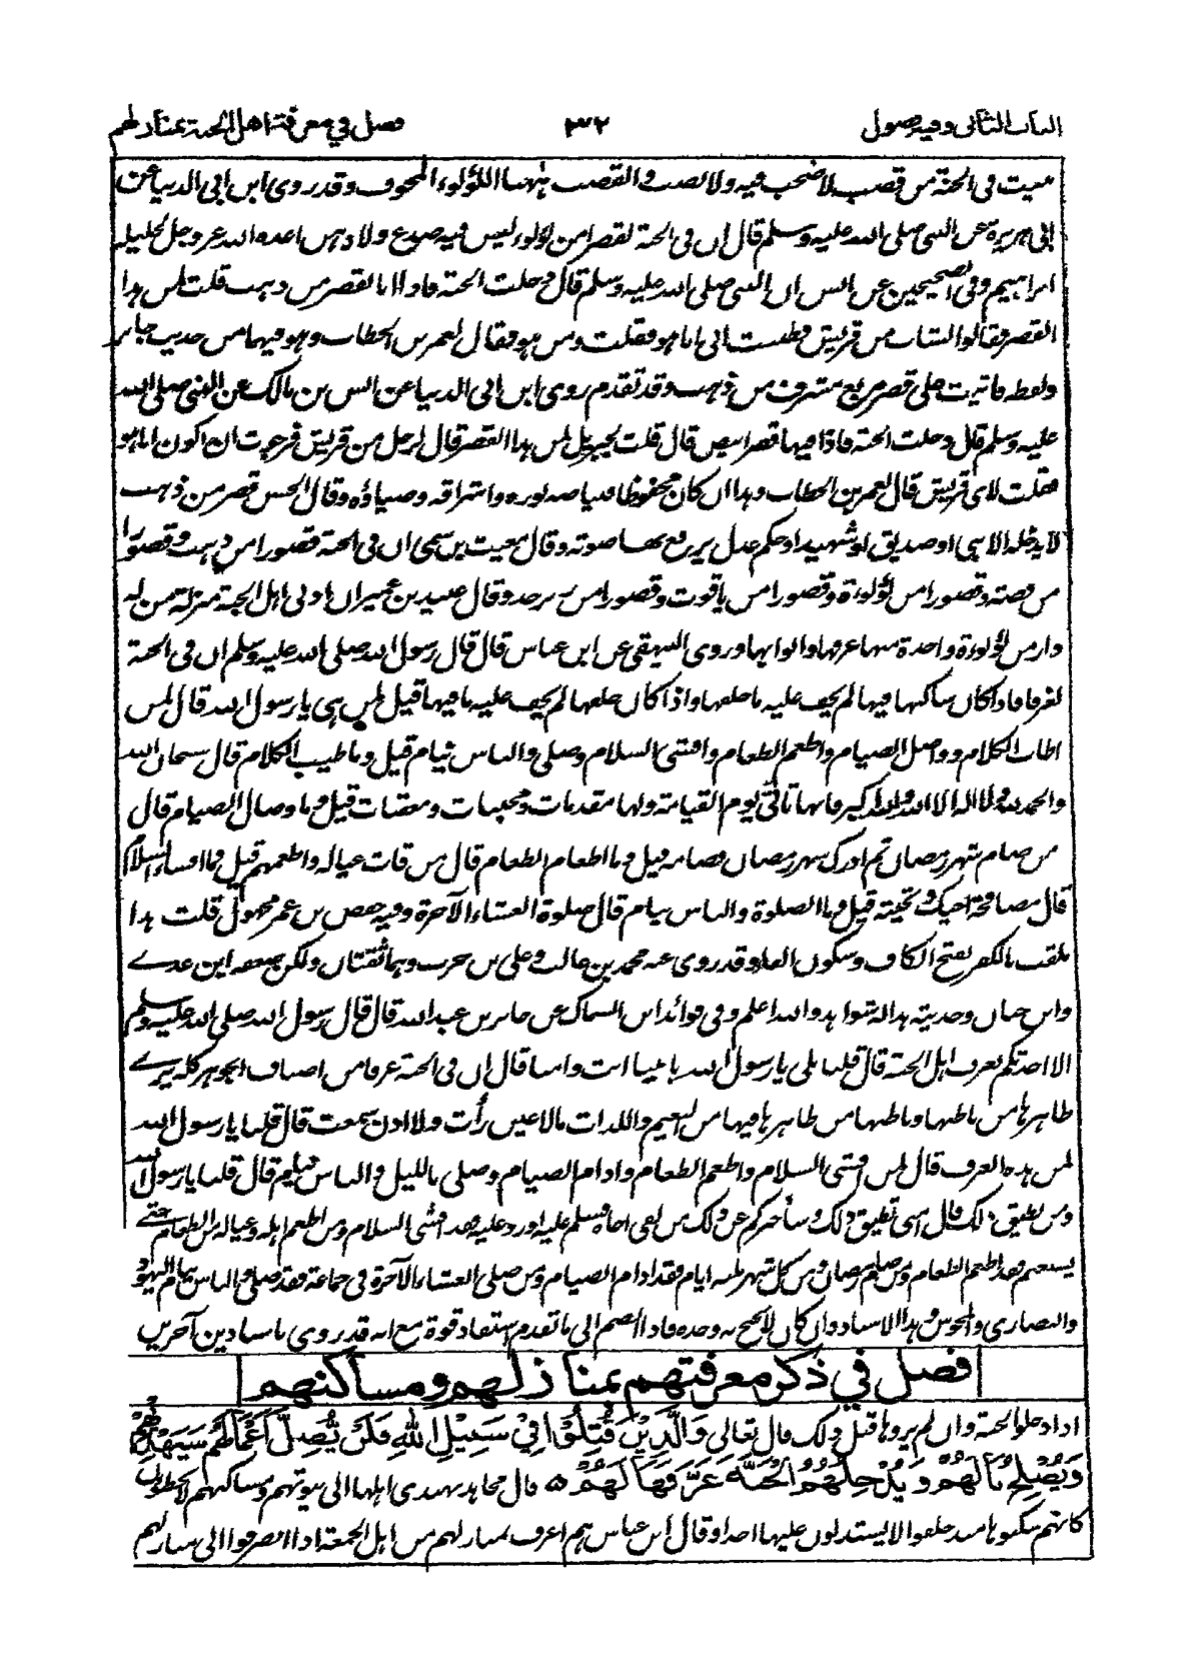 الباب الثانى وفيه فصول ٢٣٢ فصل في معرفة اهل الجنة بمنازلهم
ببيت فى الجنة من قصب لا صخب فيه ولا نصب والقصب ههنا اللؤلؤ المجوف وقد روى ابن ابى الدنيا عن
ابى هريرة عن النبى صلى الله عليه وسلم قال ان فى الجنة لقصرا من لؤلؤ ليس فيه صدع ولا وهن اعده الله عز وجل لخليله
ابراهيم وفى الصحيحين عن انس ان النبى صلى الله عليه وسلم قال دخلت الجنة فاذا انا بقصر من ذهب قلت لمن هذا
القصر فقالوا لشاب من قريش فظننت انى انا هو فقلت ومن هو فقال لعمر بن الخطاب وهو فيهما من حديث جابر
ولفظه فاتيت على قصر مربع مشرف من ذهب وقد تقدم روى ابن ابى الدنيا عن انس بن مالك عن النبى صلى الله
عليه وسلم قال دخلت الجنة فاذا فيها قصر ابيض قال قلت لجبريل لمن هذا القصر قال لرجل من قريش فرجوت ان اكون انا هو
فقلت لاى قريش قال لعمر بن الخطاب وهذا ان كان محفوظا فبياضه نوره واشراقه وضياؤه وقال الحسن قصر من ذهب
لا يدخله الا نبى او صديق او شهيد او حكم عدل يرفع بها صوته وقال مغيث بن سمى ان فى الجنة قصورا من ذهب وقصورا
من فضة وقصورا من لؤلؤة وقصورا من ياقوت وقصورا من زبرجد وقال عبيد بن عمير ان ادنى اهل الجنة منزلة من له
دار من لؤلؤة واحدة منها غرفها وابوابها وروى البيهقى عن ابن عباس قال قال رسول الله صلى الله عليه وسلم ان فى الجنة
لغرفا فاذا كان ساكنها فيها لم يخف عليه ما خلفها واذا كان خلفها لم يخف عليه ما فيها قيل لمن هى يا رسول الله قال لمن
اطاب الكلام وواصل الصيام واطعم الطعام وافشى السلام وصلى والناس نيام قيل وما طيب الكلام قال سبحان الله
والحمد لله ولا اله الا الله والله اكبر فانها تاتى يوم القيامة ولها مقدمات ومجنبات ومعقبات قيل وما وصال الصيام قال
من صام شهر رمضان ثم ادرك شهر رمضان فصامه قيل وما اطعام الطعام قال من قات عياله واطعمهم قيل فما افشاء السلام
قال مصافحة اخيك وتحيته قيل وما الصلوة والناس نيام قال صلوة العشاء الآخرة وفيه حفص بن عمر مجهول قلت هذا
يلقب بالكفر بفتح الكاف وسكون الفاء وقد روى عنه محمد بن غالب وعلى بن حرب وهما ثقتان ولكن ضعفه ابن عدے
وابن حبان وحديثه هذا له شواهد والله اعلم وفى فوائد ابن السماك عن جابر بن عبد الله قال قال رسول الله صلى الله عليه وسلم
الا احدثكم بغرف اهل الجنة قال قلنا بلى يا رسول الله بابينا انت وامنا قال ان فى الجنة غرفا من اصناف الجوهر كله يرے
ظاهرها من باطنها وباطنها من ظاهرها فيها من النعيم واللذات مالا عين رأت ولا اذن سمعت قال قلنا يا رسول الله
لمن هذه الغرف قال لمن افشى السلام واطعم الطعام وادام الصيام وصلى بالليل والناس نيام قال قلنا يا رسول الله
ومن يطيق ذلك قال امتى تطيق ذلك وسأخبركم عن ذلك من لقى اخاه فسلم عليه او رد عليه فقد افشى السلام ومن اطعم اهله وعياله من الطعام حتى
يشبعهم فقد اطعم الطعام ومن صام رمضان ومن كل شهر ثلاثة ايام فقد ادام الصيام ومن صلى العشاء الآخرة فى جماعة فقد صلى والناس نيام اليهود
والنصارى والمجوس وهذا الاسناد وان كان لا يحتج به وحده فاذا انضم الى ما تقدم استفاد قوة مع انه قد روى باسنادين آخرين
فصل في ذكر معرفتهم بمنازلهم ومساكنهم
اذا دخلوا الجنة وان لم يروها قبل ذلك قال تعالى وَالَّذِيْنَ قُتِلُوْا فِيْ سَبِيْلِ اللهِ فَلَنْ يُّضِلَّ اَعْمَالَهُمْ سَيَهْدِيْهِمْ
وَيُصْلِحُ بَالَهُمْ وَيُدْخِلُهُمُ الْجَنَّةَ عَرَّفَهَا لَهُمْ ۝ قال مجاهد يهتدى اهلها الى بيوتهم ومساكنهم لا يخطؤن
كانهم سكنوها منذ خلقوا لا يستدلون عليها احدا وقال ابن عباس هم اعرف بمنازلهم من اهل الجمعة اذا انصرفوا الى منازلهم